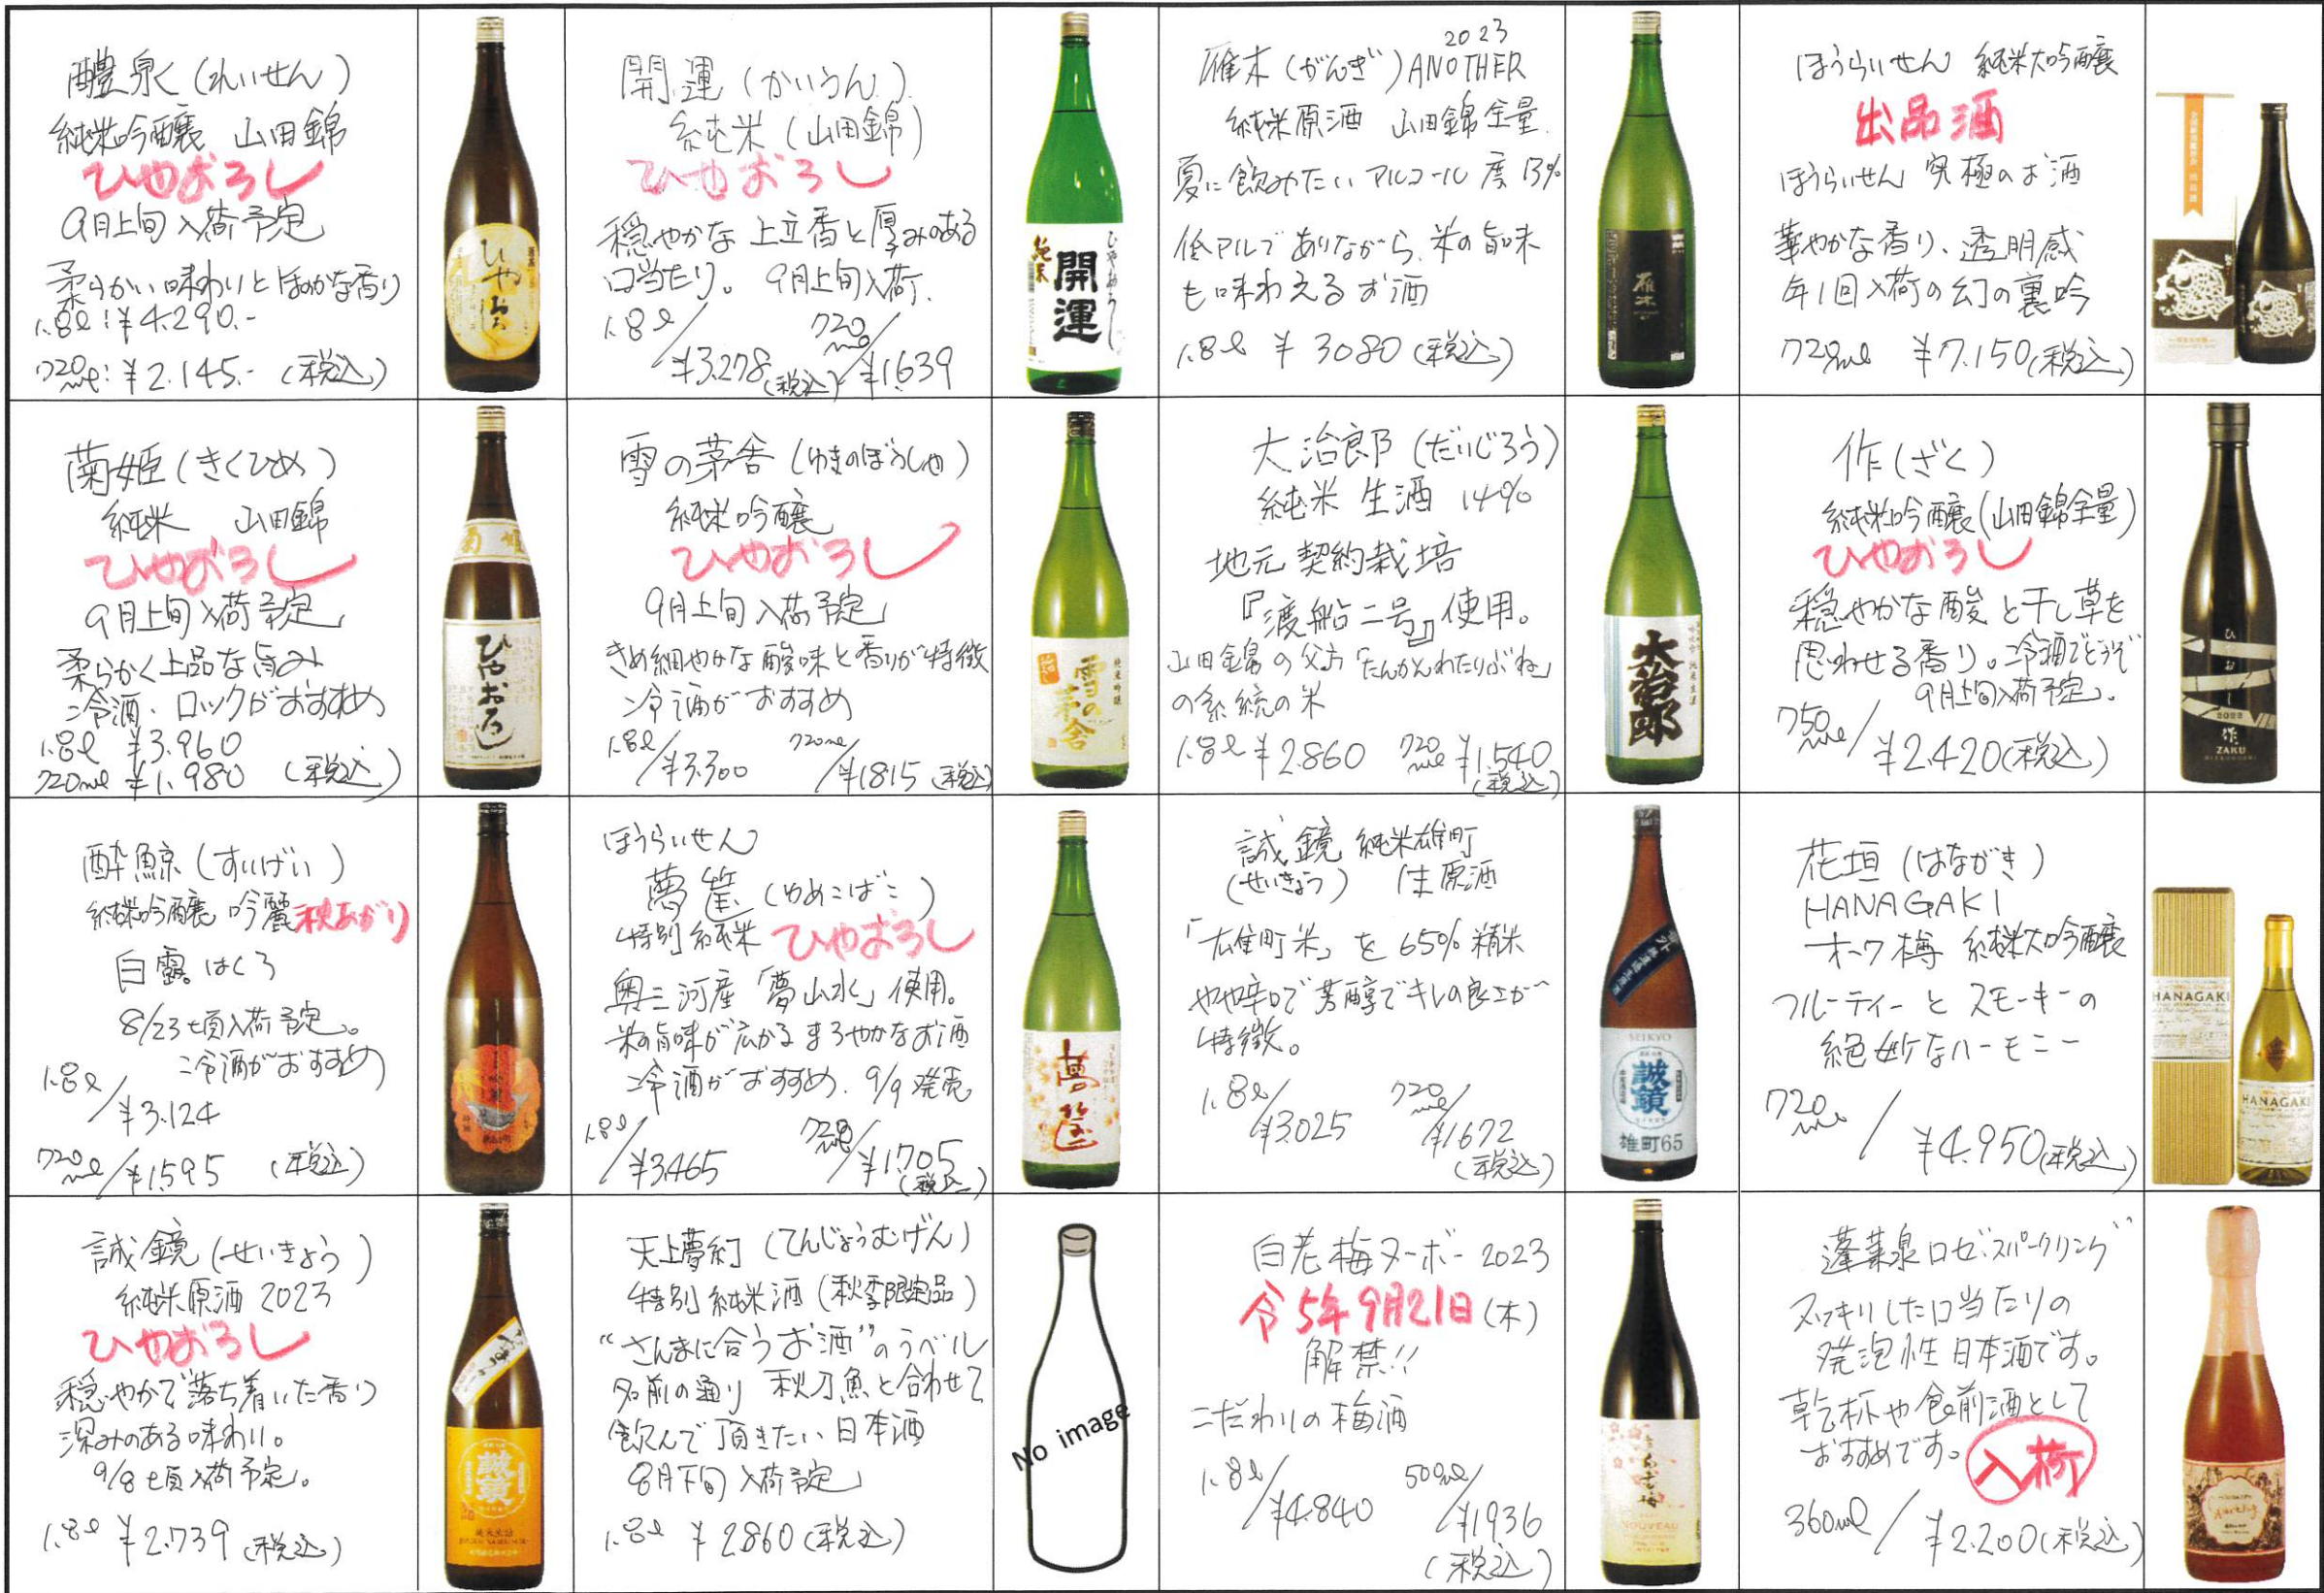 醴泉(れいせん)
純米吟醸 山田錦
ひやおろし
9月上旬入荷予定
柔らかい味わりとほのかな香り
1.8ℓ:¥4.290.-
720ml:¥2.145.- (税込)
ひやおろし
開運(かいうん)
純米(山田錦)
ひやおろし
穏やかな上立香と厚みのある
口当たり。9月上旬入荷.
1.8ℓ/¥3.278 720ml/¥1.639
(税込)
ひやおろし
純米
開運
2023
雁木(がんぎ)ANOTHER
純米原酒 山田錦全量.
夏に飲みたい アルコール度13%
低アルでありながら、米の旨味
も味わえるお酒
1.8ℓ ¥3080(税込)
雁木
ほうらいせん 純米大吟醸
出品酒
ほうらいせん 究極のお酒
華やかな香り、透明感
年1回入荷の幻の裏吟
720ml ¥7.150(税込)
菊姫(きくひめ)
純米 山田錦
ひやおろし
9月上旬入荷予定
柔らかく上品な旨み
冷酒、ロックがおすすめ
1.8ℓ ¥3.960
720ml ¥1.980 (税込)
菊姫
ひやおろし
雪の茅舎(ゆきのぼうしゃ)
純米吟醸
ひやおろし
9月上旬入荷予定
きめ細やかな酸味と香りが特徴
冷酒がおすすめ
1.8ℓ/¥3.300 720ml/¥1815(税込)
純米吟醸
雪の茅舎
大治郎(だいじろう)
純米 生酒 14%
地元契約栽培
『渡船二号』使用。
山田錦の父方「たんかんわたりぶね」
の系統の米
1.8ℓ ¥2.860 720ml ¥1.540
(税込)
大治郎
作(ざく)
純米吟醸(山田錦全量)
ひやおろし
穏やかな酸と干し草を
思わせる香り。冷酒でどうぞ
9月上旬入荷予定.
750ml/¥2.420(税込)
ひやおろし
2022
作
ZAKU
酔鯨(すいげい)
純米吟醸 吟麗 秋あがり
白露 はくろ
8/23頃入荷予定。
冷酒がおすすめ
1.8ℓ/¥3.124
720ml/¥1.595 (税込)
ほうらいせん
夢筺(ゆめこばこ)
特別純米 ひやおろし
奥三河産「夢山水」使用。
米の旨味が広がるまろやかなお酒
冷酒がおすすめ. 9/9発売
1.8ℓ/¥3.465 720ml/¥1.705
(税込)
夢筺
誠鏡 純米雄町
(せいきょう) 生原酒
「広雄町米」を65%精米
やや辛口で芳醇でキレの良さが
特徴。
1.8ℓ/¥3.025 720ml/¥1672
(税込)
SEIKYO
誠鏡
雄町65
花垣(はながき)
HANAGAKI
オーク樽 純米大吟醸
フルーティーとスモーキーの
絶妙なハーモニー
720ml/¥4.950(税込)
HANAGAKI
HANAGAKI
誠鏡(せいきょう)
純米原酒 2023
ひやおろし
穏やかで落ち着いた香り
深みのある味わい。
9/8頃入荷予定。
1.8ℓ ¥2.739(税込)
誠鏡
天上夢幻(てんじょうむげん)
特別純米酒(秋季限定品)
“さんまに合うお酒”のラベル
名前の通り 秋刀魚と合わせて
飲んで頂きたい日本酒
8月下旬入荷予定
1.8ℓ ¥2860(税込)
No image
白老梅ヌーボー 2023
令5年9月21日(木)
解禁!!
こだわりの梅酒
1.8ℓ/¥4.840 500ml/¥1936
(税込)
NOUVEAU
蓬莱泉ロゼ・スパークリング
スッキリした口当たりの
発泡性日本酒です。
乾杯や食前酒として
おすすめです。
入荷
360ml/¥2.200(税込)